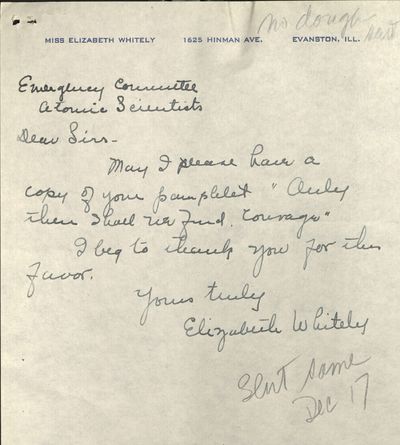 no dough
sent
MISS ELIZABETH WHITELY 1625 HINMAN AVE. EVANSTON, ILL.
Emergency Committee
Atomic Scientists
Dear Sirs-
May I please have a
copy of your pamphlet "Only
then shall we find Courage"
I beg to thank you for this
favor.
Yours truly
Elizabeth Whitely
Sent same
Dec 17